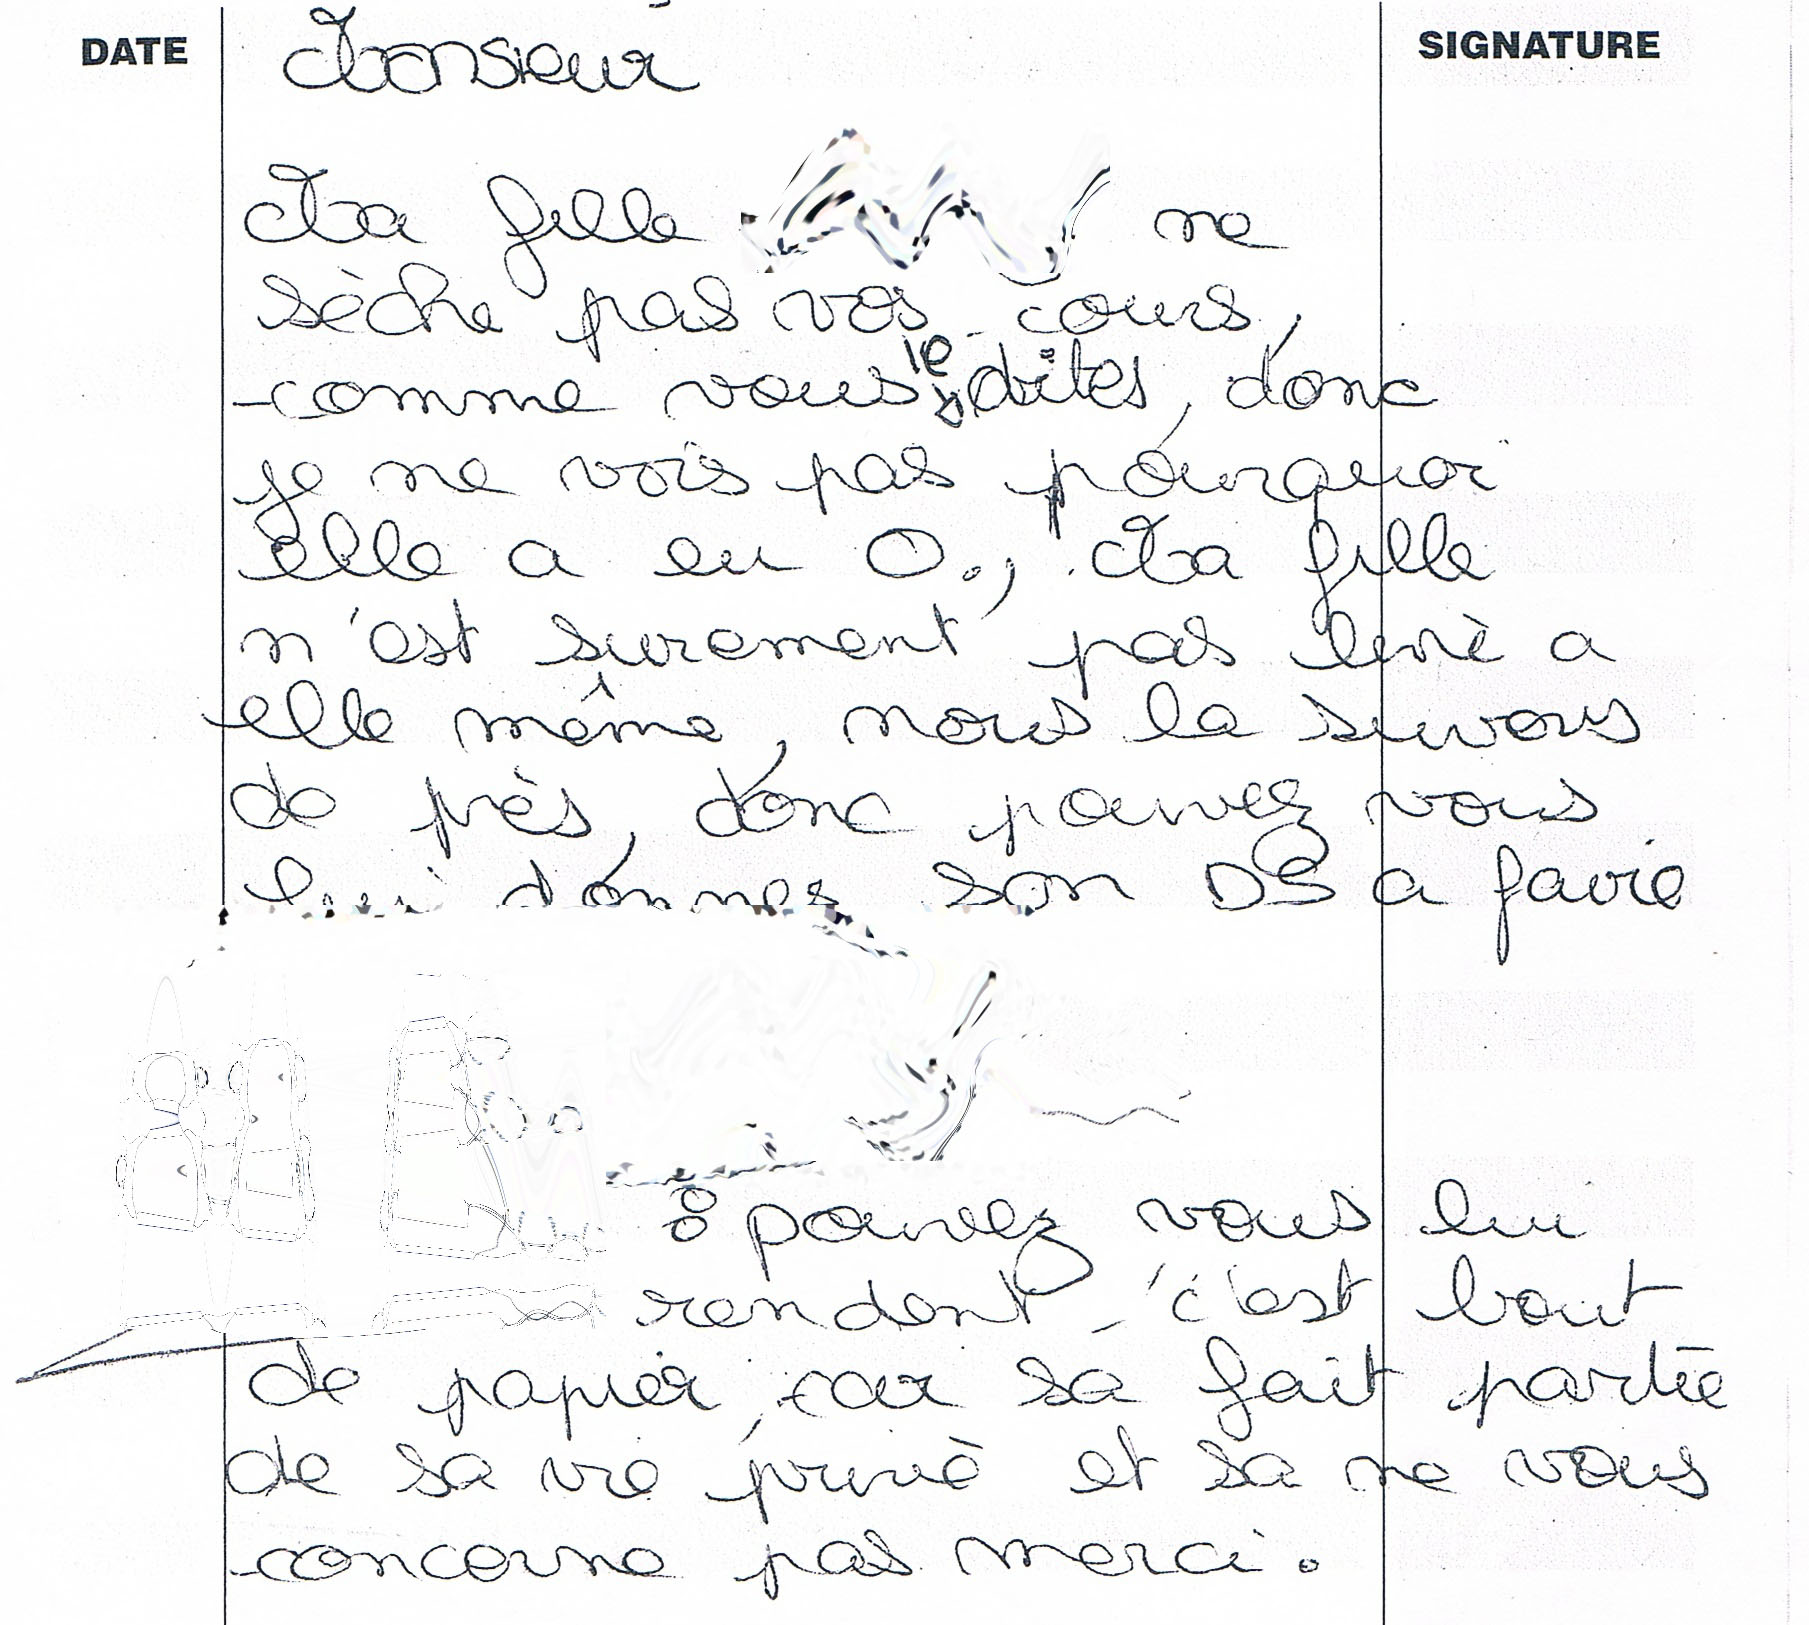 DATE
Monsieur
SIGNATURE
Ma fille ne
sèche pas vos cours,
comme vous le dites, donc
je ne vois pas pourquoi
elle a eu 0., Ma fille
n'est surement pas livrè a
elle même, nous la suivons
de près, donc pouvez vous
lui donnes son DS a favie
pouvez vous lui
rendent c'est bout
de papier, car sa fait partie
de sa vie privè et sa ne vous
concerne pas merci.